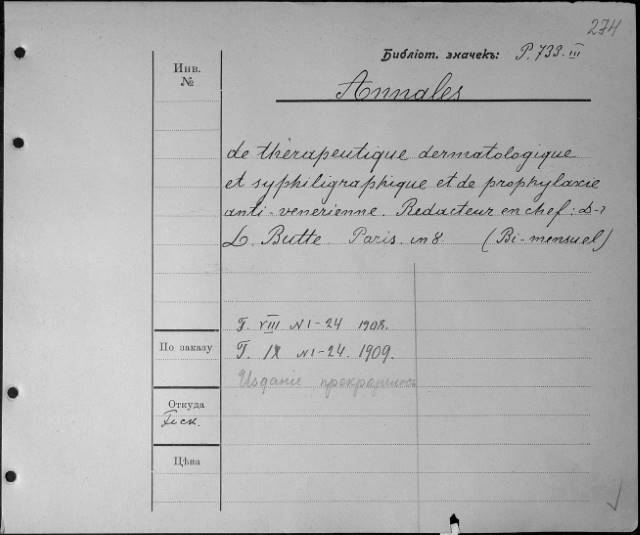 274
Библіот. значекъ: P. 733. III
Инв.
№
Annales
de thérapeutique dermatologique
et syphiligraphique et de prophylaxie
anti-venerienne. Redacteur en chef: D-r
L. Butte. Paris. in 8 (Bi-mensuel)
T. VIII N 1-24 1908.
По заказу
T. IX N 1-24. 1909.
Изданіе прекратилось
Откуда
Цѣна